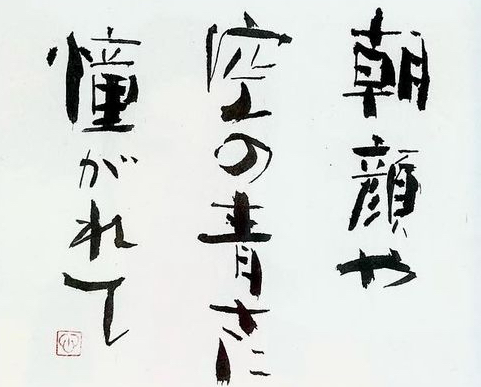 朝顔や
空の青さに
憧がれて